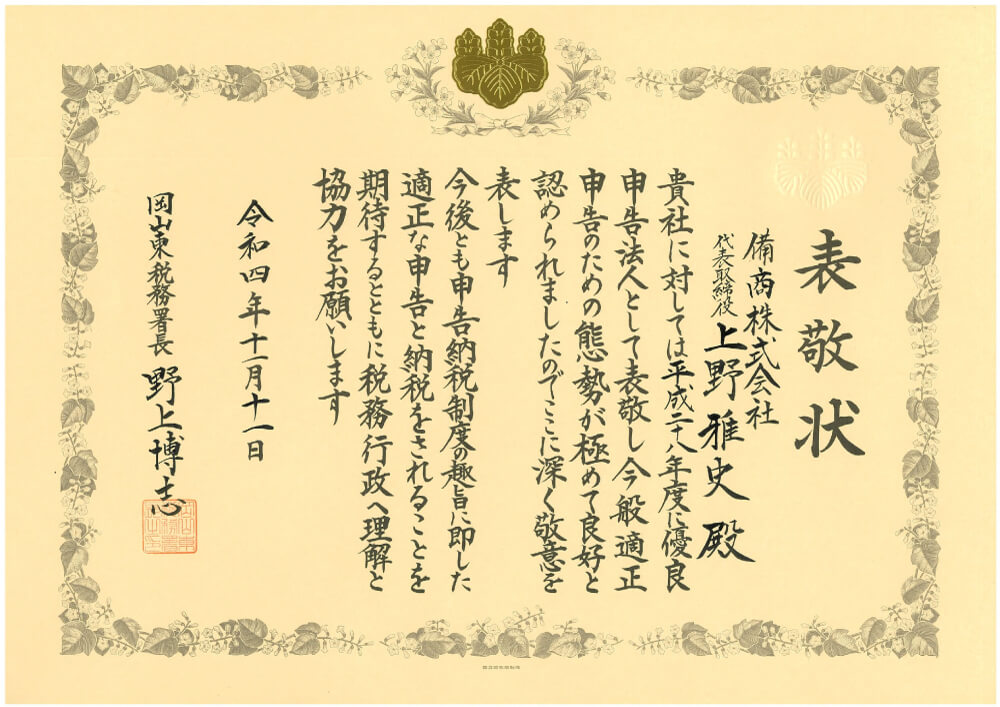 表敬状
備商株式会社
代表取締役 上野雅史 殿
貴社に対しては平成二十八年度に優良
申告法人として表敬し今般適正
申告のための態勢が極めて良好と
認められましたのでここに深く敬意を
表します
今後とも申告納税制度の趣旨に即した
適正な申告と納税をされることを
期待するとともに税務行政へ理解と
協力をお願いします
令和四年十一月十一日
岡山東税務署長 野上博志